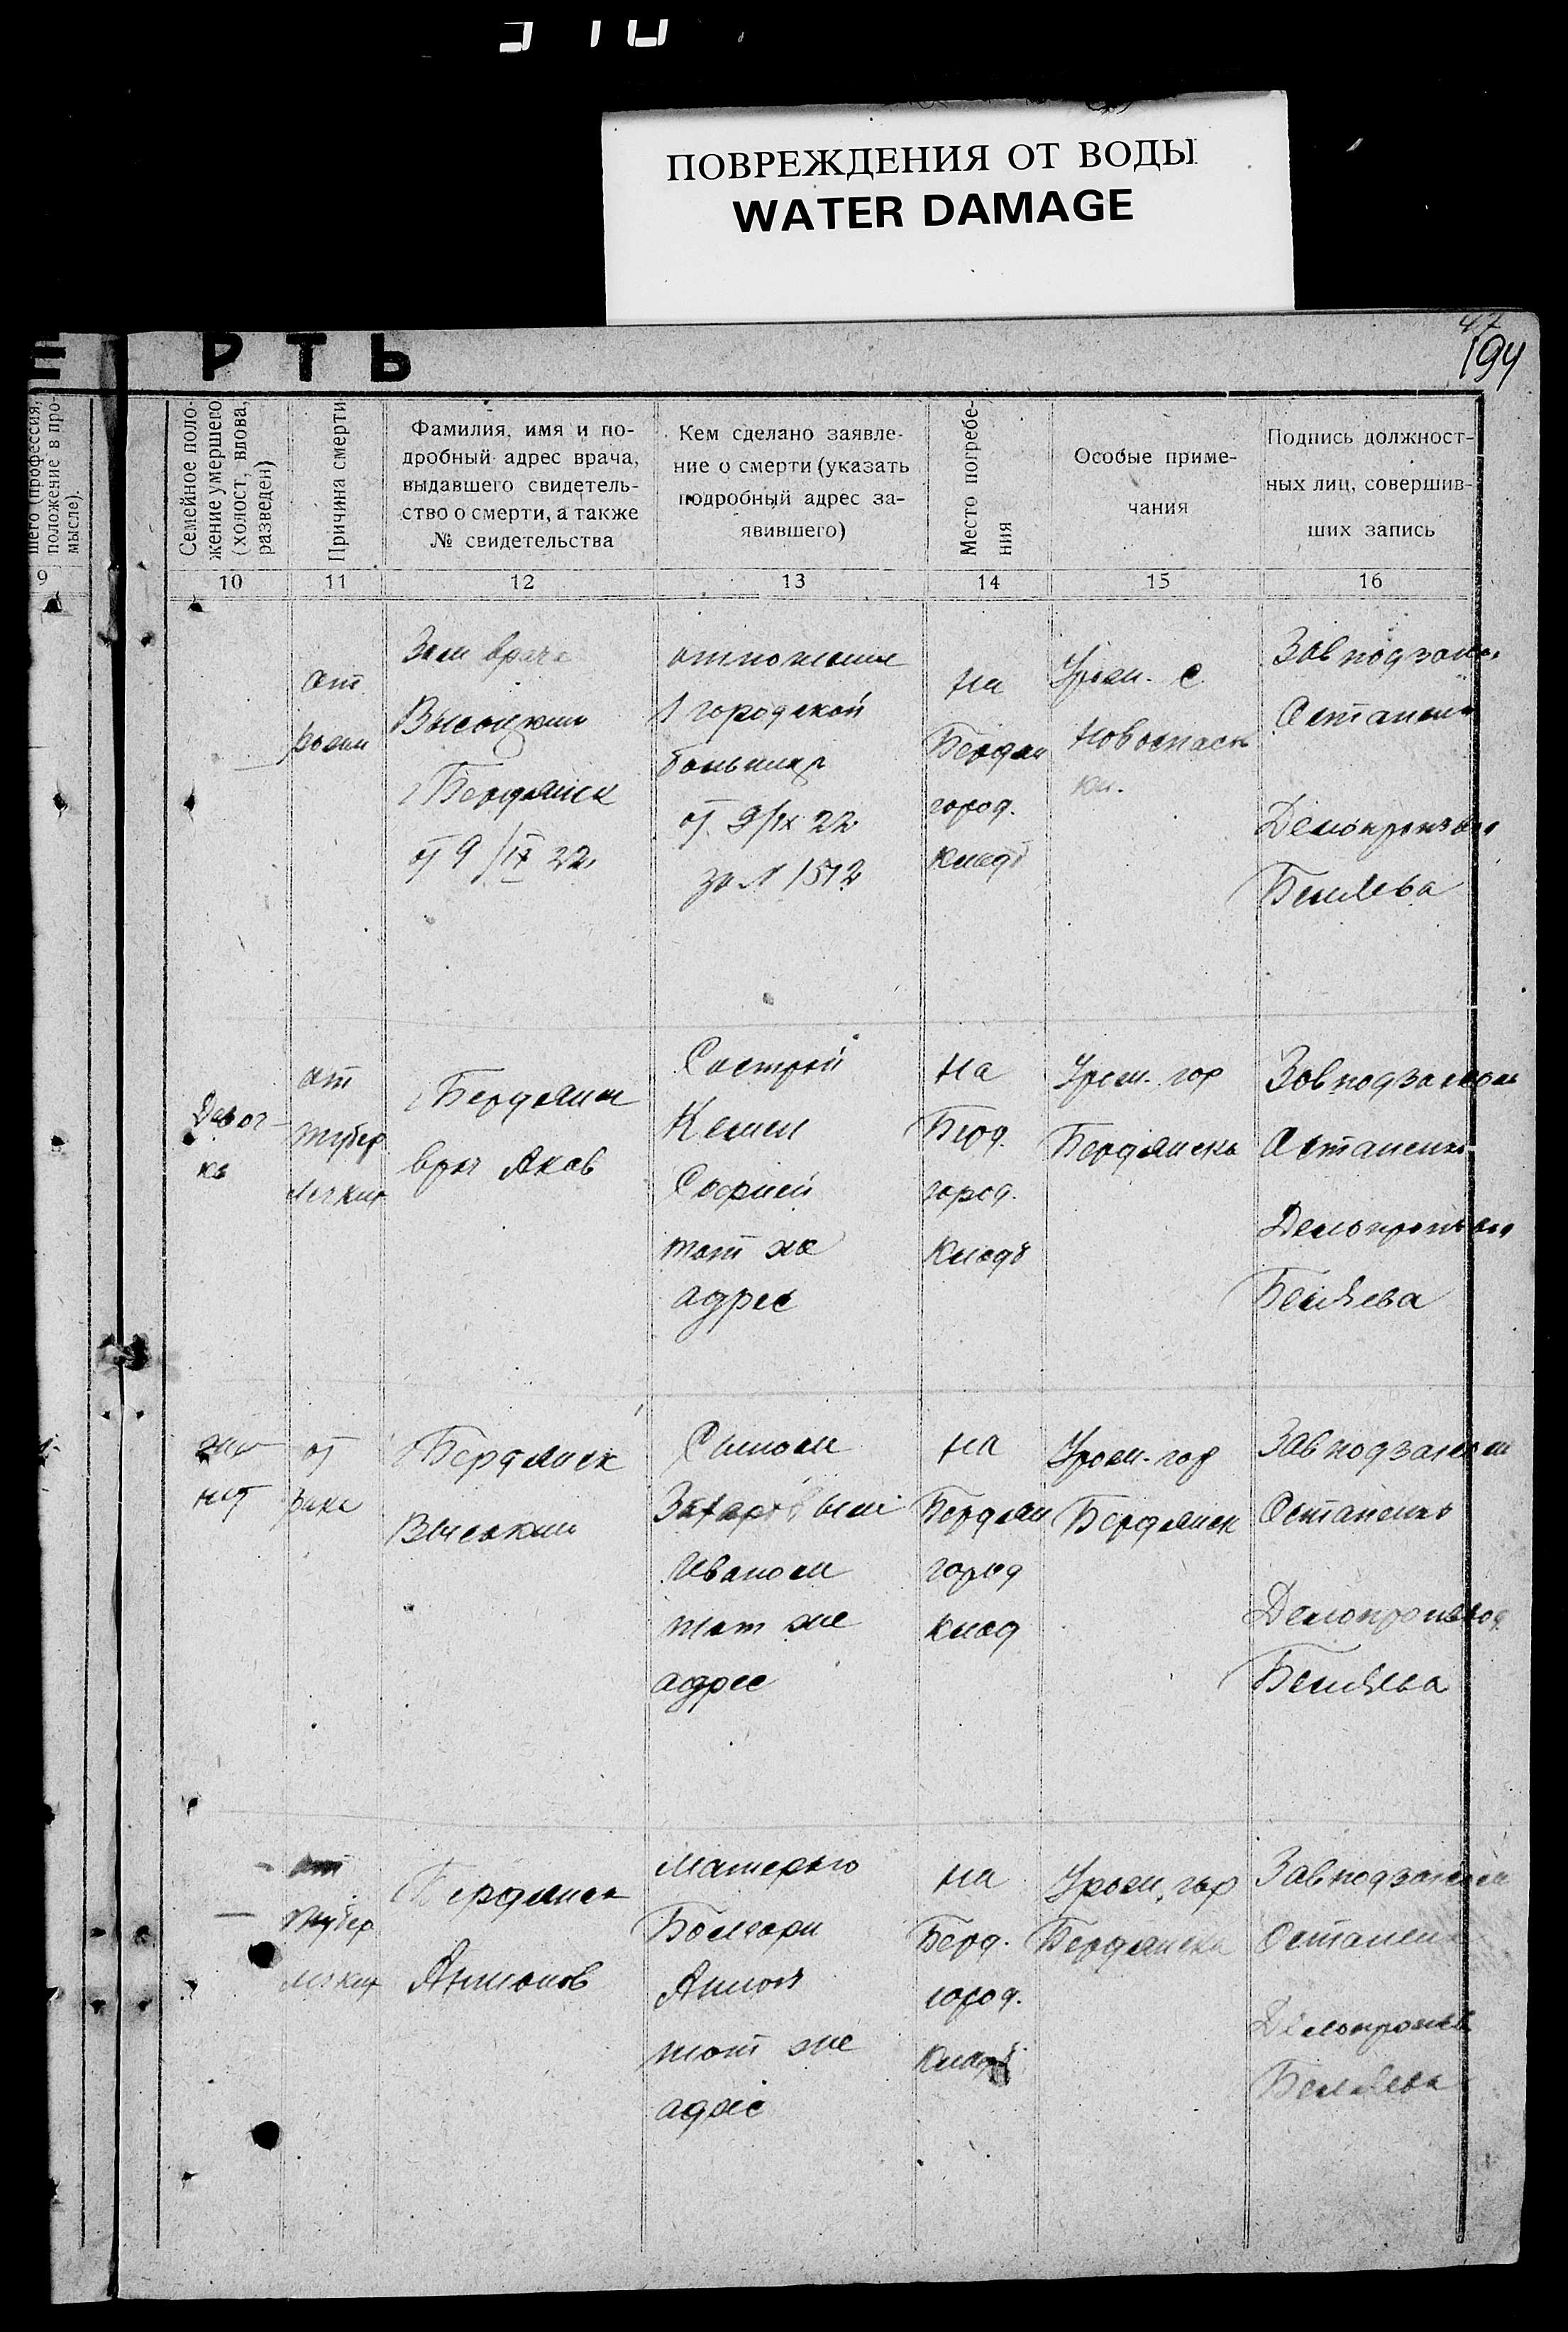 ПОВРЕЖДЕНИЯ ОТ ВОДЫ
WATER DAMAGE
47
194
Р Т Ь
шего (профессия,
положение в про-
мысле).
Семейное поло-
жение умершего
(холост, вдова,
разведен)
Причина смерти
Фамилия, имя и по-
дробный адрес врача,
выдавшего свидетель-
ство о смерти, а также
№ свидетельства
Кем сделано заявле-
ние о смерти (указать
подробный адрес за-
явившего)
Место погребе-
ния
Особые приме-
чания
Подпись должност-
ных лиц, совершив-
ших запись
9
10
11
12
13
14
15
16
от
рожи
Зам врача
Высоцким
г Бердянск
от 9/IX 22.
отношение
1 городской
больницы
от 9/IX 22
за N 1512
на
Бердян
город.
клад
Урож. с
Новоспасс
Зав подзаг
Остапенко
Делопроизв
Беляева
Девоч
ка
от
тубер
легких
г Бердянск
врач Яков
Сестрой
Софией
тот же
адрес
на
Берд.
город.
клад
Урож. гор
Бердянска
Зав подзагсом
Остапенко
Делопроизв
Беляева
жен
от
г Бердянск
Высоким
Сыном
Захаровым
Иваном
тот же
адрес
на
Бердян
город
клад
Урож. гор
Бердянск
Зав подзагсом
Остапенко
Делопроизвод
Беляева
от
тубер
легких
г Бердянск
Антонов
Матерью
Анной
тот же
адрес
на
Берд.
город.
клад
Урож. гор
Бердянска
Зав подзагсом
Остапенко
Делопроизв
Беляева